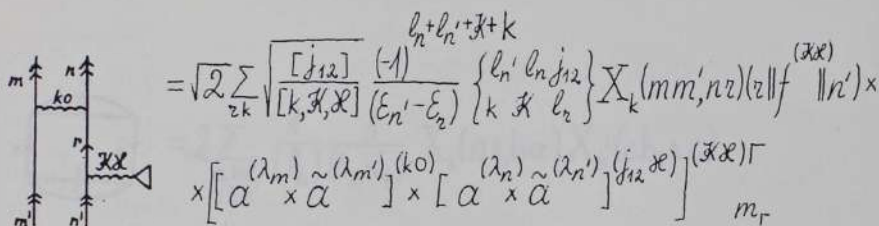 m n k0 r 𝒦ϰ m' n'
= √2 ∑_{rk} √([j₁₂]/[k,𝒦,ϰ]) (-1)^{l_n+l_{n'}+𝒦+k}/(ε_{n'}-ε_r) {l_{n'} l_n j₁₂ / k 𝒦 l_r} X_k(mm',nr)(r‖f^{(𝒦ϰ)}‖n')×
×[[a^{(λ_m)}×ã^{(λ_{m'})}]^{(k0)}×[a^{(λ_n)}×ã^{(λ_{n'})}]^{(j₁₂ϰ)}]^{(𝒦ϰ)Γ}_{m_Γ}